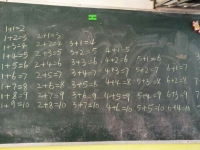 1+1=2
1+2=3 2+1=3
1+3=4 2+2=4 3+1=4
1+4=5 2+3=5 3+2=5 4+1=5
1+5=6 2+4=6 3+3=6 4+2=6 5+1=6
1+6=7 2+5=7 3+4=7 4+3=7 5+2=7
1+7=8 2+6=8 3+5=8 4+4=8 5+3=8 6+2=8
1+8=9 2+7=9 3+6=9 4+5=9 5+4=9 6+3=9
1+9=10 2+8=10 3+7=10 4+6=10 5+5=10 6+4=10